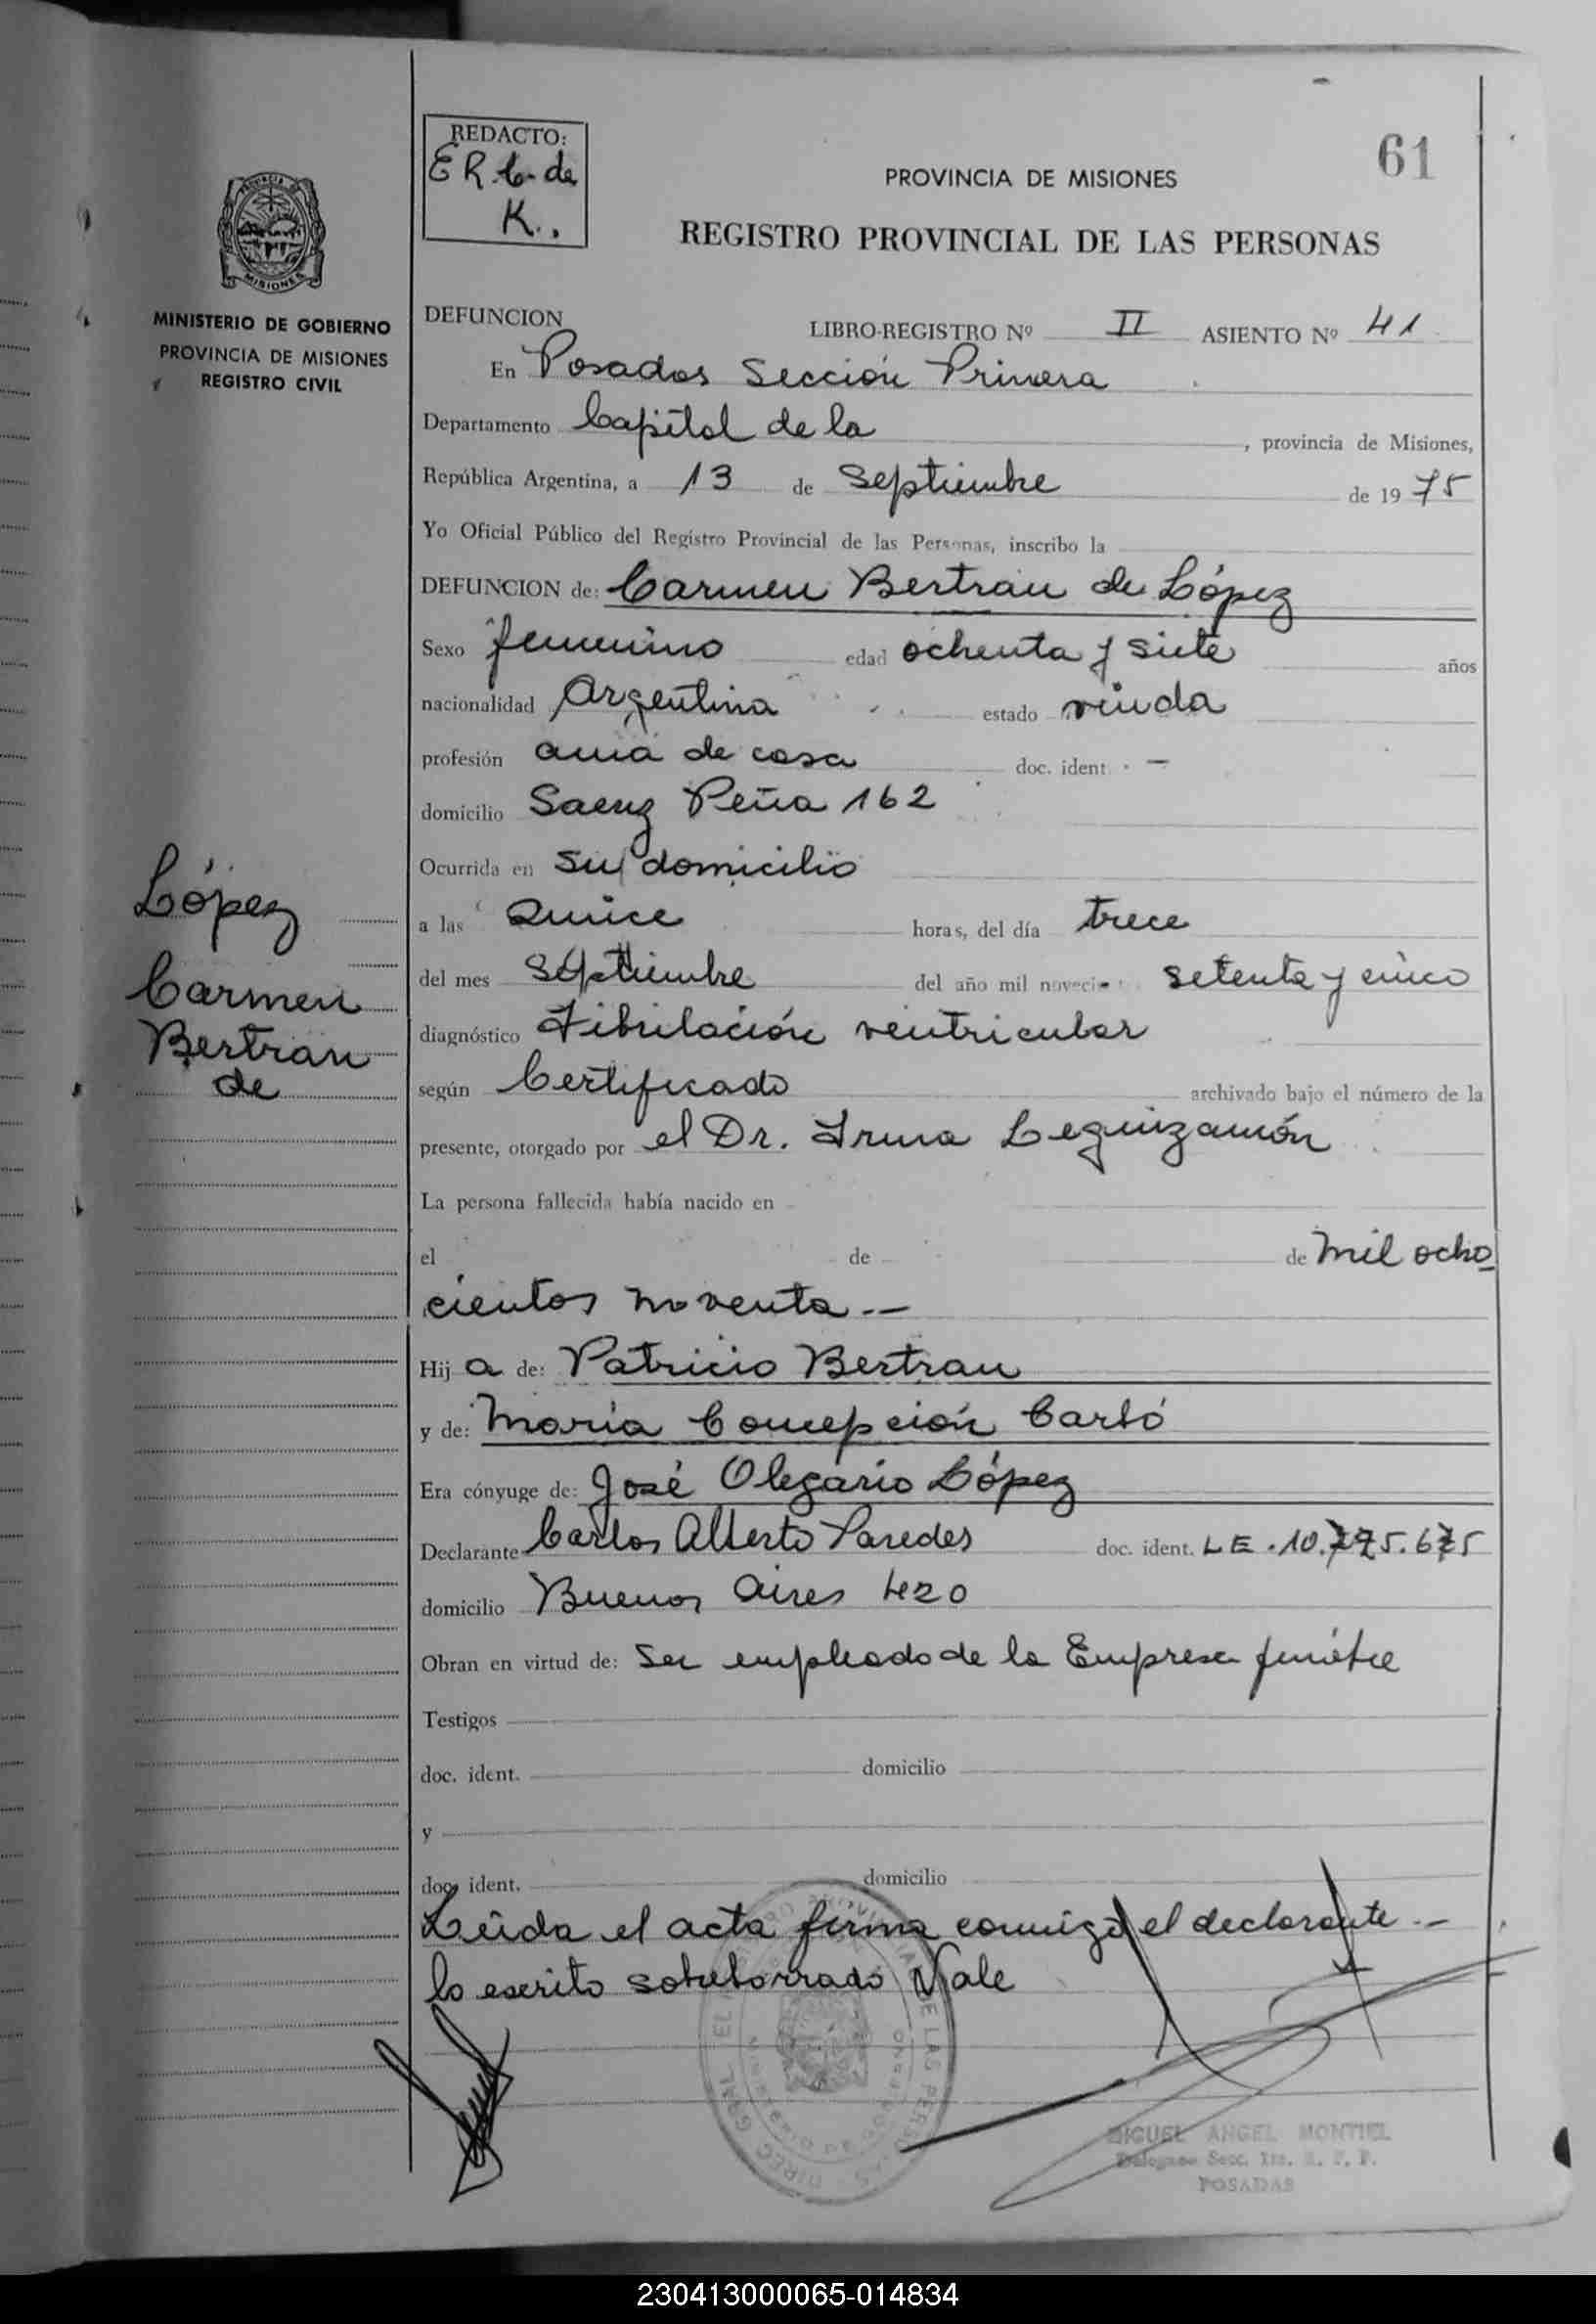 61
REDACTO:
E R. C. de
K..
PROVINCIA DE MISIONES
REGISTRO PROVINCIAL DE LAS PERSONAS
MISIONES
MINISTERIO DE GOBIERNO
PROVINCIA DE MISIONES
REGISTRO CIVIL
DEFUNCION
LIBRO-REGISTRO Nº II ASIENTO Nº 41
En Posadas Sección Primera
Departamento Capital de la , provincia de Misiones,
República Argentina, a 13 de Septiembre de 1975
Yo Oficial Público del Registro Provincial de las Personas, inscribo la
DEFUNCION de: Carmen Bertran de López
Sexo femenino edad ochenta y siete años
nacionalidad Argentina estado viuda
profesión ama de casa doc. ident. -
domicilio Saenz Peña 162
Ocurrida en su domicilio
a las Quince horas, del día trece
del mes Septiembre del año mil noveci setenta y cinco
diagnóstico Fibrilación ventricular
según Certificado archivado bajo el número de la
presente, otorgado por el Dr. Irma Leguizamón
La persona fallecida había nacido en
el de de Mil ocho
cientos noventa.-
Hij a de: Patricio Bertran
y de: María Concepción Carbó
Era cónyuge de: José Olegario López
Declarante Carlos Alberto Paredes doc. ident. LE.
domicilio Buenos Aires 420
Obran en virtud de: Ser empleado de la Empresa fúnebre
Testigos
doc. ident. domicilio
y
doc. ident. domicilio
Leída el acta firma conmigo el declarante.-
lo escrito sobreborrado Vale
López
Carmen
Bertran
de
MIGUEL ANGEL MONTIEL
POSADAS
230413000065-014834